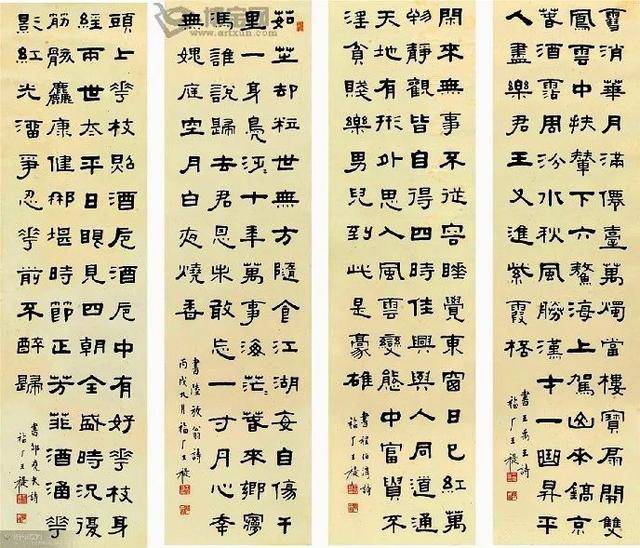 雪消華月滿僊臺萬燭當樓寶扇開雙
鳳雲中扶輦下六鰲海上駕山來鎬京
春酒霑周汾水秋風勝漢才一曲昇平
人盡樂君王又進紫霞桮
書王禹玉詩
福厂王禔
閑來無事不從容睡覺東窗日已紅萬
物靜觀皆自得四時佳興與人同道通
天地有形外思入風雲變態中富貴不
淫貧賤樂男兒到此是豪雄
書程伯淳詩
福厂王禔
茹芝却粒世無方隨食江湖每自傷千
里一身鳧泛〻十年萬事海茫〻春來鄉夢
馮誰說歸去君恩未敢忘一寸丹心幸
無媿庭空月白夜燒香
書陸放翁詩
丙戌九月福厂王禔
頭上華枝照酒卮酒卮中有好華枝身
經兩世太平日眼見四朝全盛時況復
筋骸麤康健那堪時節正芳菲酒涵華
影紅光溜爭忍華前不醉歸
書邵堯夫詩
福厂王禔
博宝网
www.artxun.com